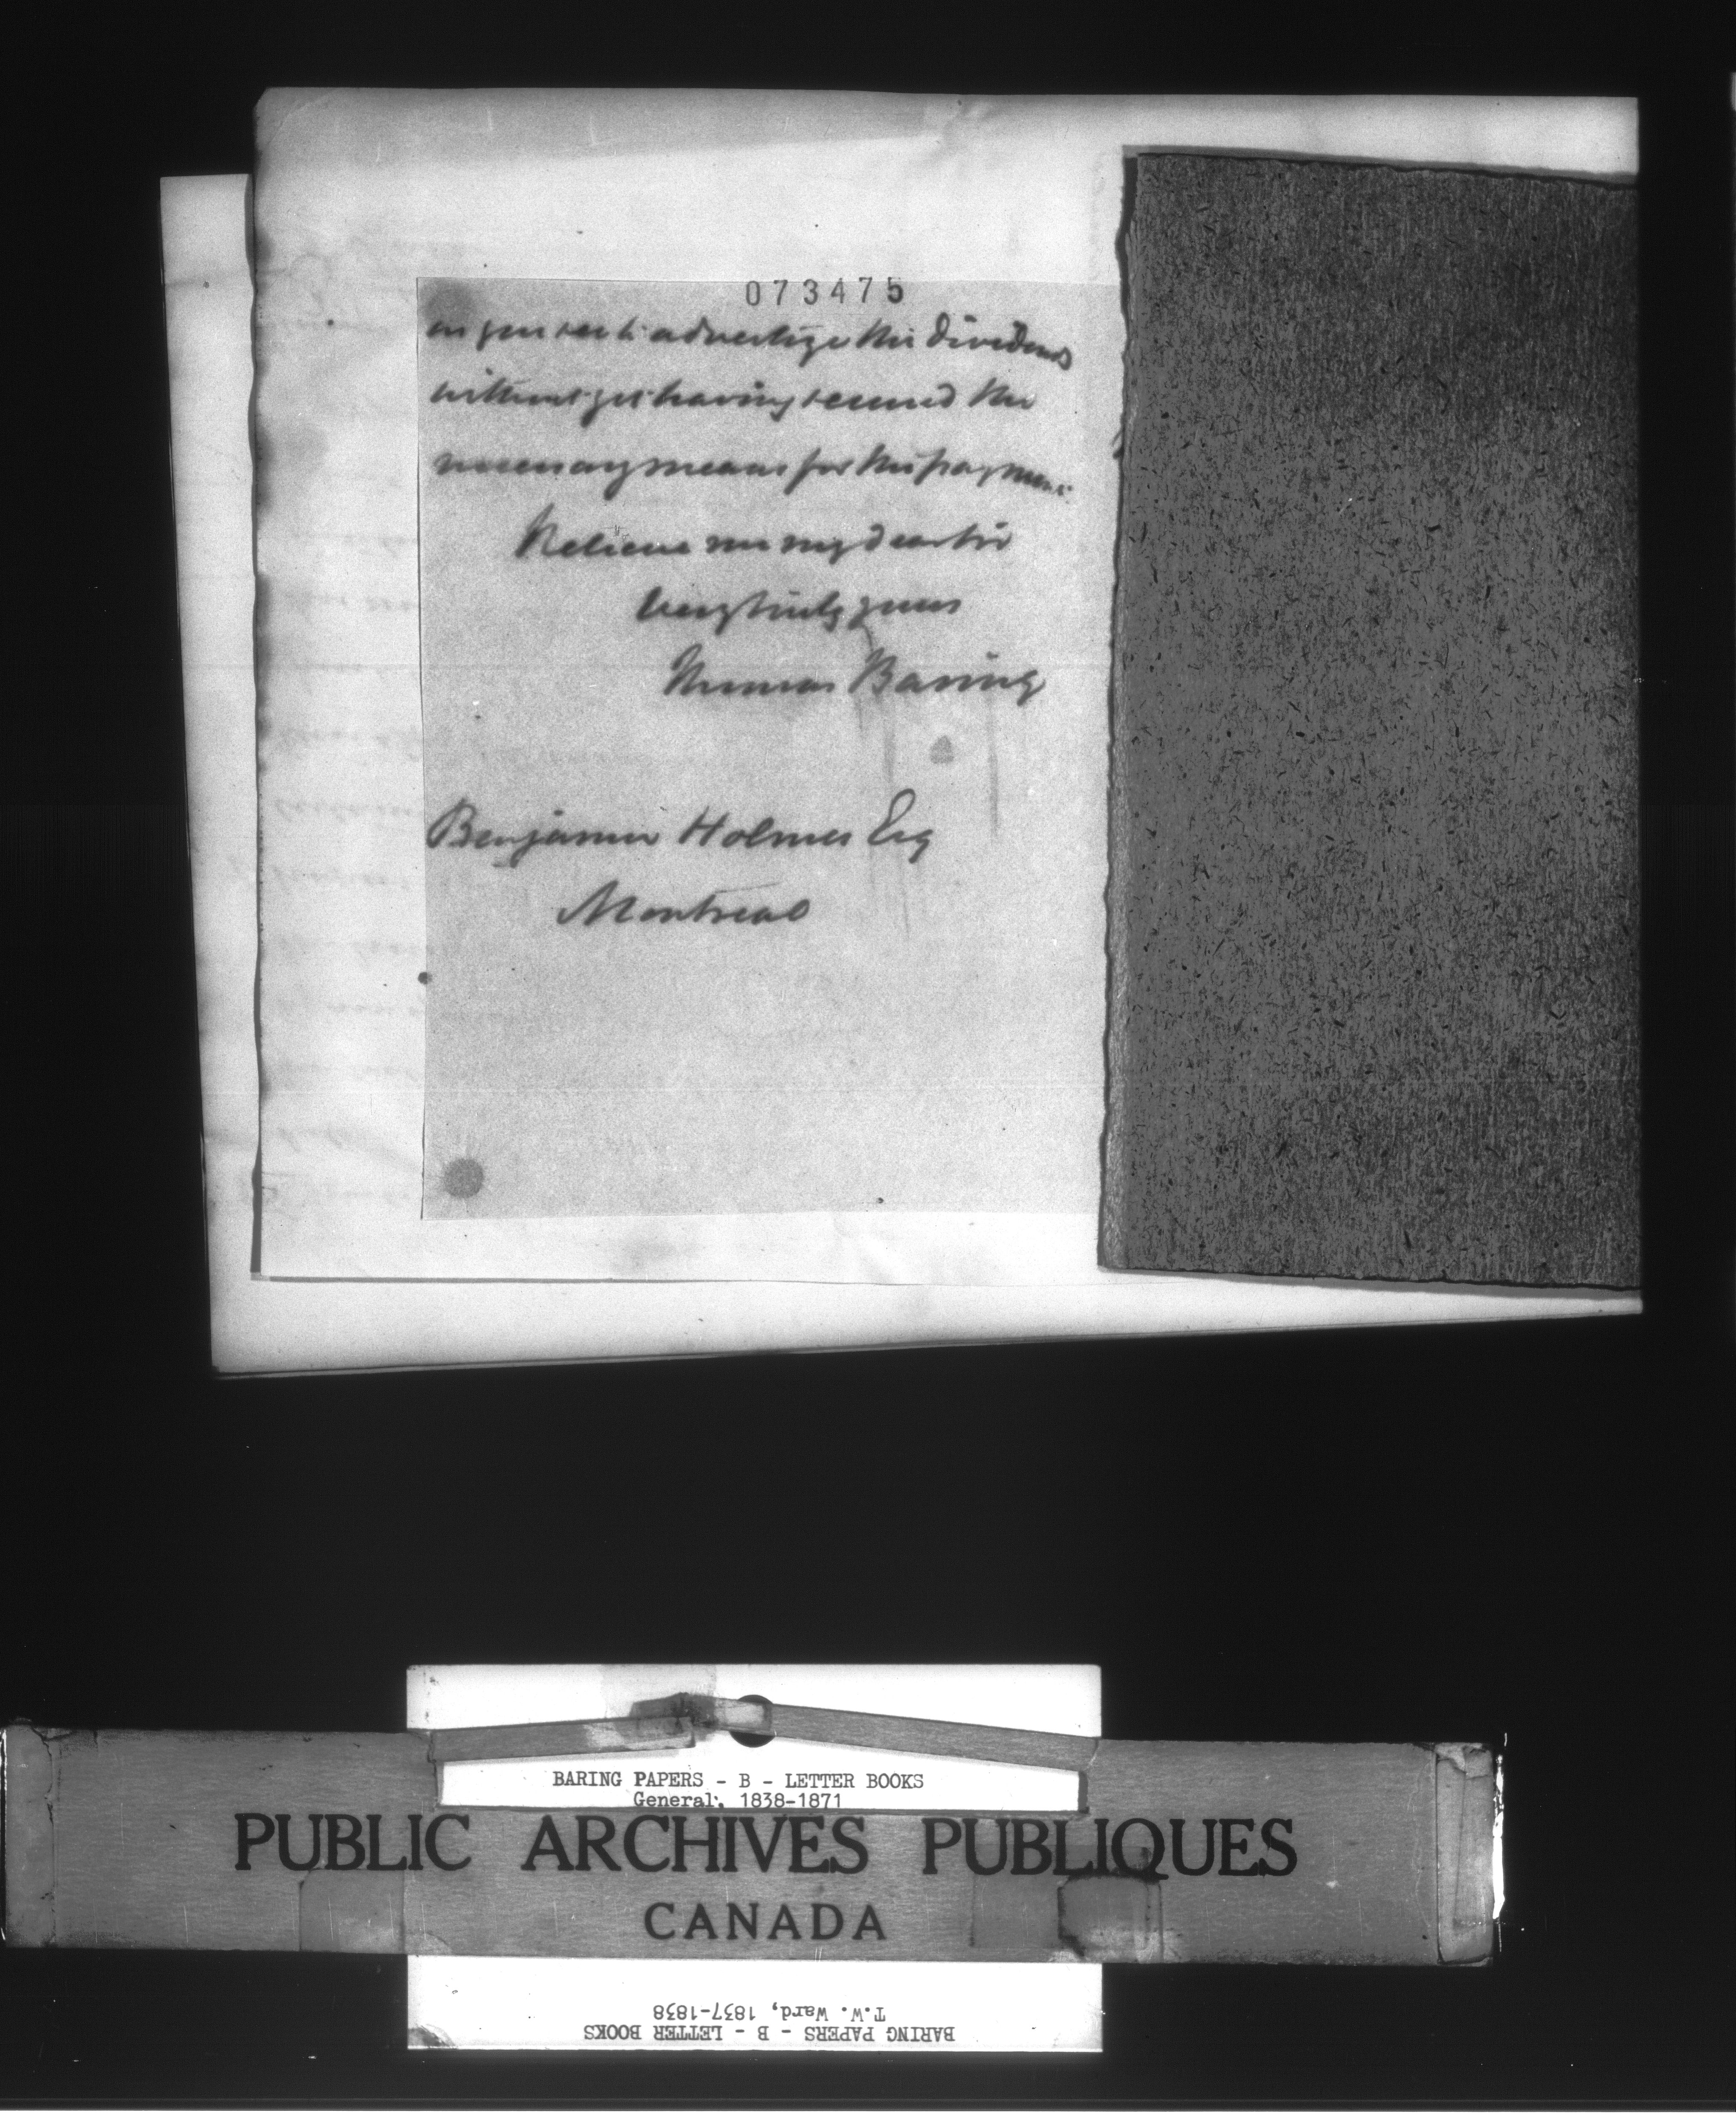 073475
advertize the Dividends
without yet having secured the
necessary means for the payment
Believe me my dear Sir
Very truly yours
Thomas Baring
Benjamin Holmes Esq
Montreal
BARING PAPERS - B - LETTER BOOKS
General, 1838-1871
PUBLIC ARCHIVES PUBLIQUES
CANADA
T.W. Ward, 1837-1838
BARING PAPERS - B - LETTER BOOKS